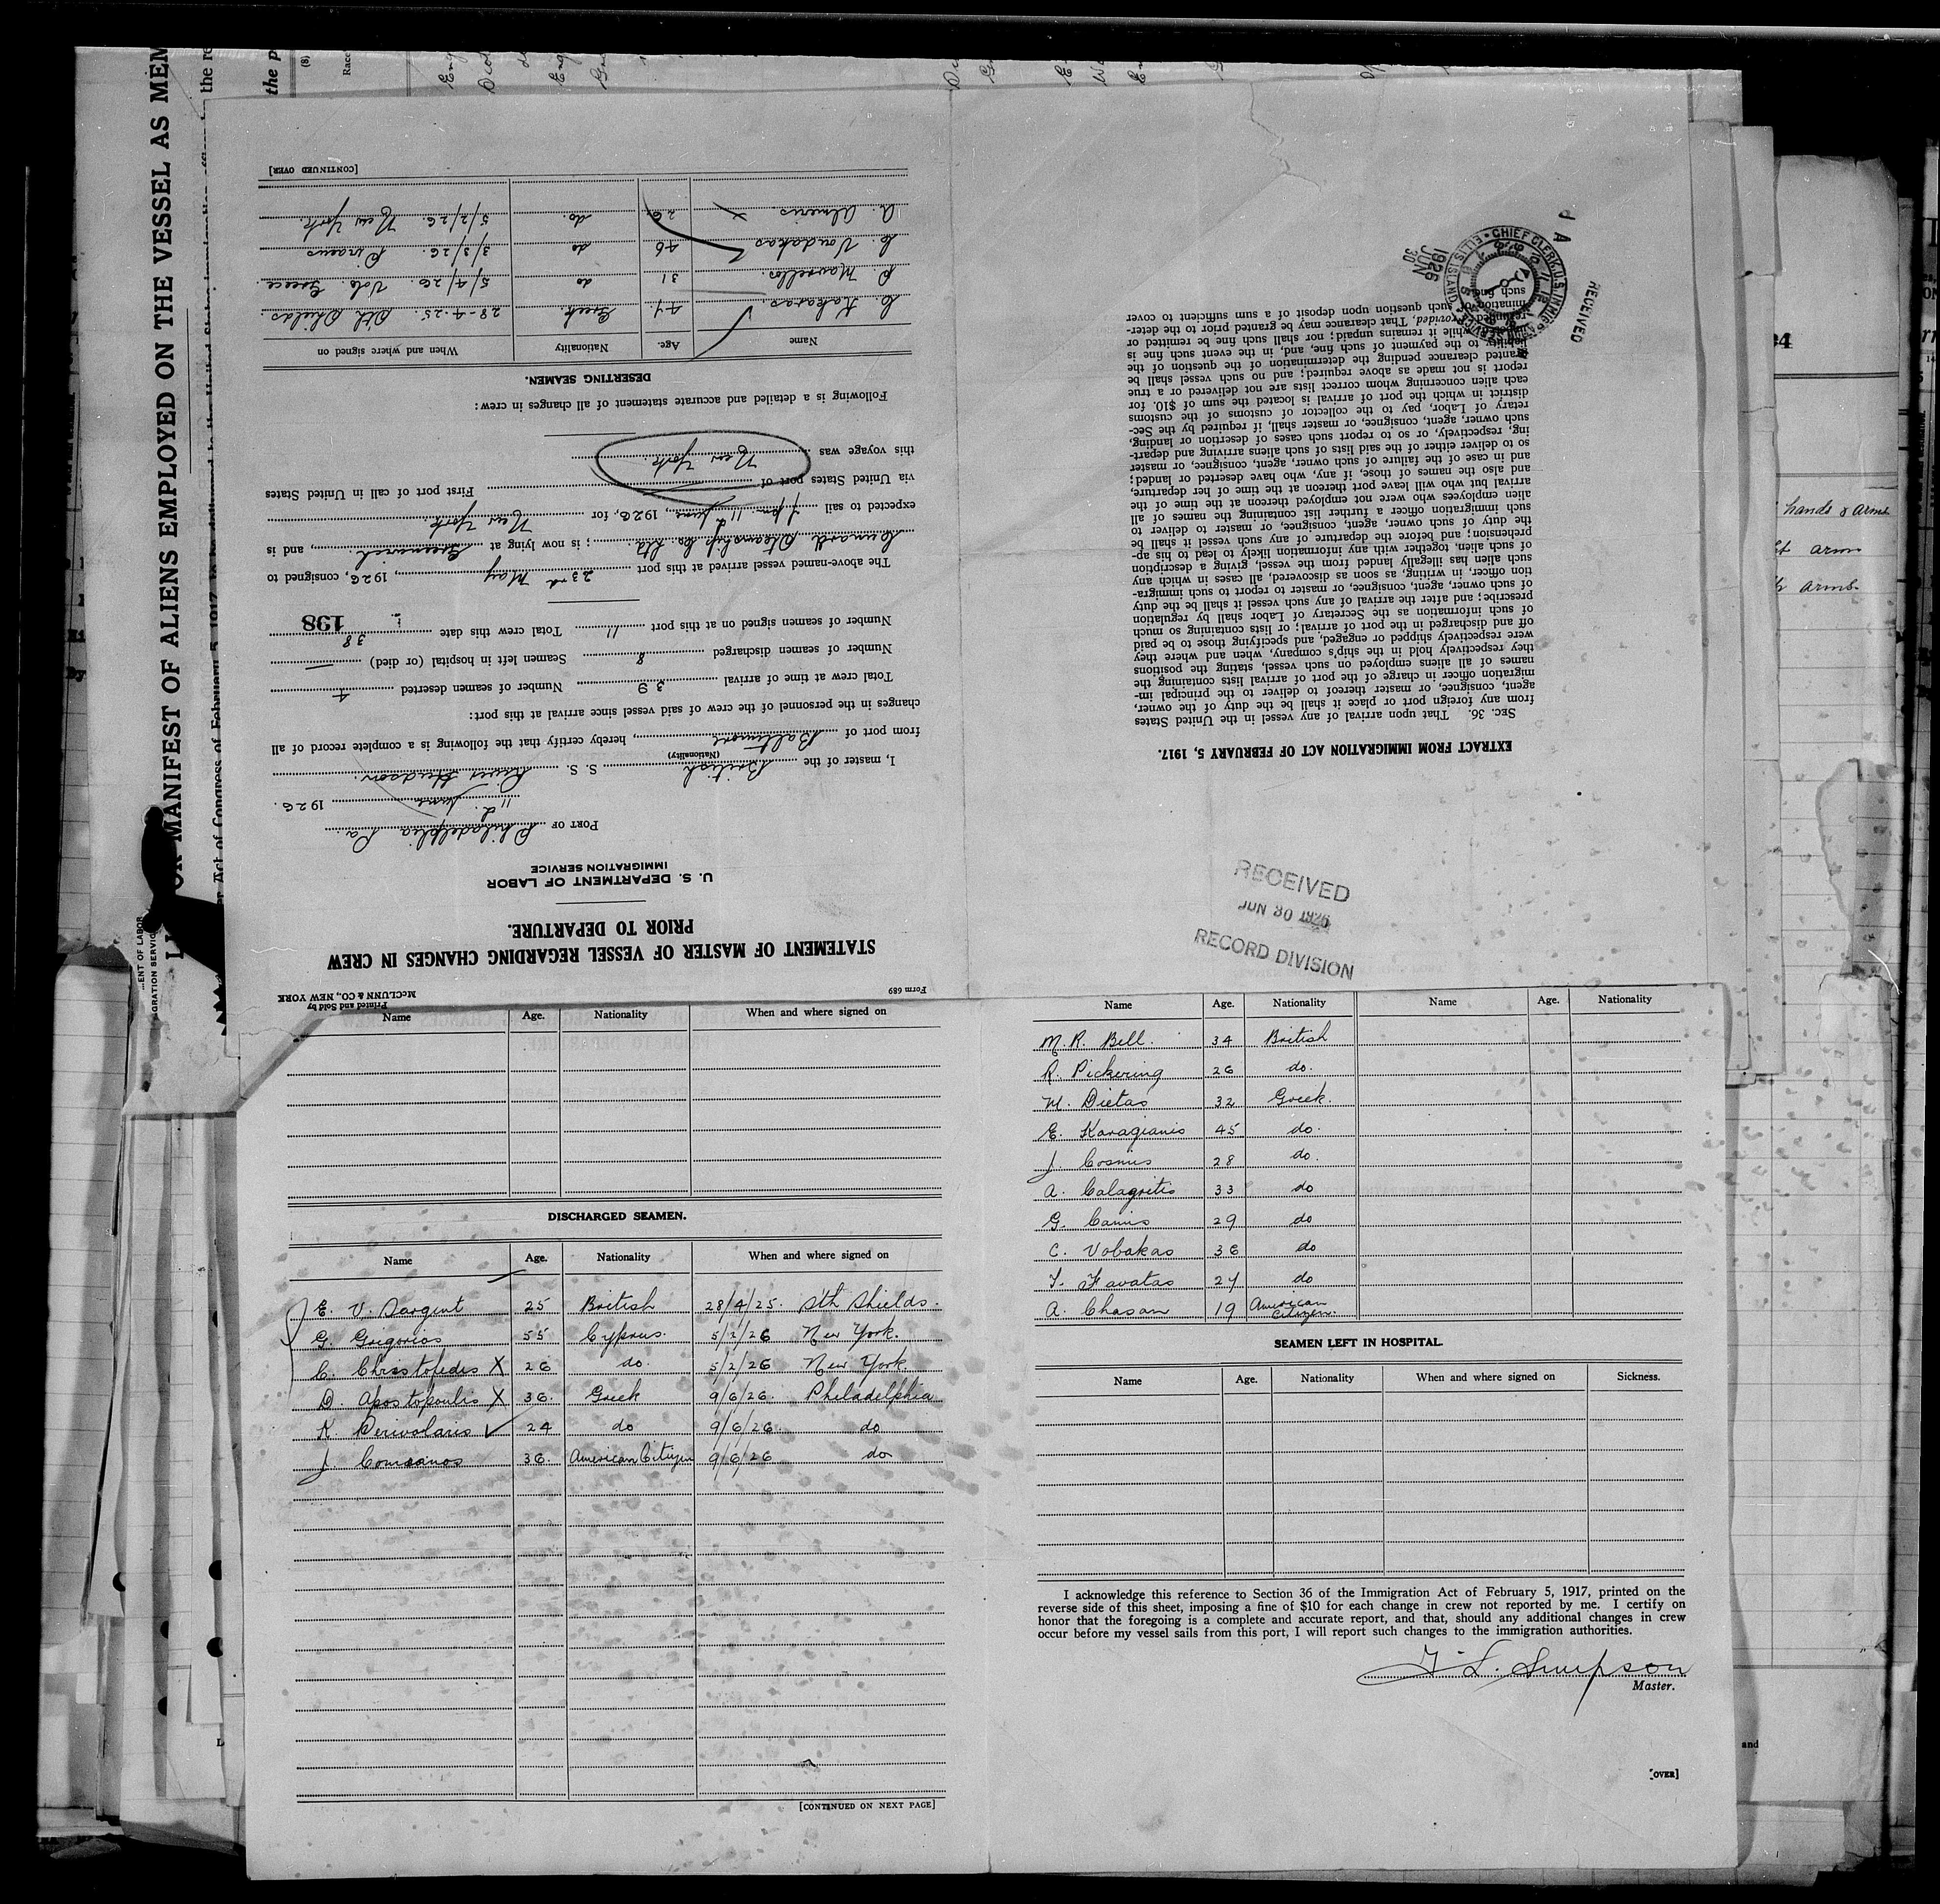 Form 689
Printed and Sold by
McCLUNN & CO., NEW YORK
STATEMENT OF MASTER OF VESSEL REGARDING CHANGES IN CREW
PRIOR TO DEPARTURE.
U. S. DEPARTMENT OF LABOR
IMMIGRATION SERVICE
PORT OF Philadelphia Pa.
11 June 1926.
I, master of the British S. S. River Hudson.
(Nationality)
from port of Baltimore, hereby certify that the following is a complete record of all
changes in the personnel of the crew of said vessel since arrival at this port:
Total crew at time of arrival 39 Number of seamen deserted 4
Number of seamen discharged 8 Seamen left in hospital (or died) —
Number of seamen signed on at this port 11 Total crew this date 38
198
The above-named vessel arrived at this port 23rd May, 1926, consigned to
Cunard Steamship Co Ltd.; is now lying at Greenwich, and is
expected to sail 11 June, 1926, for New York.
via United States port of First port of call in United States
this voyage was New York.
Following is a detailed and accurate statement of all changes in crew:
DESERTING SEAMEN.
Name Age. Nationality When and where signed on
C. Kakaras. 47 Greek. 28-4-25. Sth Shields.
P. Mavrellos. 31 do 5/4/26. Volo. Greece
C. Vondakas 46 do 3/3/26. Piraeus
A. Almeris. 26 do. 5/2/26. New York.
[CONTINUED OVER]
EXTRACT FROM IMMIGRATION ACT OF FEBRUARY 5, 1917.
SEC. 36. That upon arrival of any vessel in the United States
from any foreign port or place it shall be the duty of the owner,
agent, consignee, or master thereof to deliver to the principal im-
migration officer in charge of the port of arrival lists containing the
names of all aliens employed on such vessel, stating the positions
they respectively hold in the ship's company, when and where they
were respectively shipped or engaged, and specifying those to be paid
off and discharged in the port of arrival; or lists containing so much
of such information as the Secretary of Labor shall by regulation
prescribe; and after the arrival of any such vessel it shall be the duty
of such owner, agent, consignee, or master to report to such immigra-
tion officer, in writing, as soon as discovered, all cases in which any
such alien has illegally landed from the vessel, giving a description
of such alien, together with any information likely to lead to his ap-
prehension; and before the departure of any such vessel it shall be
the duty of such owner, agent, consignee, or master to deliver to
such immigration officer a further list containing the names of all
alien employees who were not employed thereon at the time of the
arrival but who will leave port thereon at the time of her departure,
and also the names of those, if any, who have deserted or landed;
and in case of the failure of such owner, agent, consignee, or master
so to deliver either of the said lists of such aliens arriving and depart-
ing, respectively, or so to report such cases of desertion or landing,
such owner, agent, consignee, or master shall, if required by the Sec-
retary of Labor, pay to the collector of customs of the customs
district in which the port of arrival is located the sum of $10. for
each alien concerning whom correct lists are not delivered or a true
report is not made as above required; and no such vessel shall be
granted clearance pending the determination of the question of the
liability to the payment of such fine, and, in the event such fine is
imposed, while it remains unpaid; nor shall such fine be remitted or
refunded: Provided, That clearance may be granted prior to the deter-
mination of such question upon deposit of a sum sufficient to cover
such fine.
RECEIVED
1926 JUN 30
CHIEF CLERK, U.S. IMMIG'N SERVICE ELLIS ISLAND
RECEIVED
JUN 30 1926
RECORD DIVISION
Name Age. Nationality When and where signed on
DISCHARGED SEAMEN.
Name Age. Nationality When and where signed on
E. V. Sargent 25 British 28/4/25. Sth Shields.
G. Gregorios 55 Cyprus. 5/2/26 New York.
C. Christofedis X 26 do. 5/2/26 New York.
D. Apostopoulis X 36. Greek 9/6/26. Philadelphia
K. Perivolaris 24 do 9/6/26. do
J. Comoanos 36. American Citizen 9/6/26 do
[CONTINUED ON NEXT PAGE]
Name Age. Nationality Name Age. Nationality
M. R. Bell. 34 British
R. Pickering 26 do.
M. Dietas 32 Greek.
E. Karagianis 45 do.
J. Cosmis 28 do.
A. Calagritis 33 do
G. Canis 29 do
C. Vobakas 36 do
T. Favatas 27 do
A. Chasan 19 American Citizen.
SEAMEN LEFT IN HOSPITAL.
Name Age. Nationality When and where signed on Sickness.
I acknowledge this reference to Section 36 of the Immigration Act of February 5, 1917, printed on the
reverse side of this sheet, imposing a fine of $10 for each change in crew not reported by me. I certify on
honor that the foregoing is a complete and accurate report, and that, should any additional changes in crew
occur before my vessel sails from this port, I will report such changes to the immigration authorities.
T. L. Simpson
Master.
[OVER]
MANIFEST OF ALIENS EMPLOYED ON THE VESSEL AS MEM
Act of Congress of February 5, 1917
hands & arms
arm
arms
and